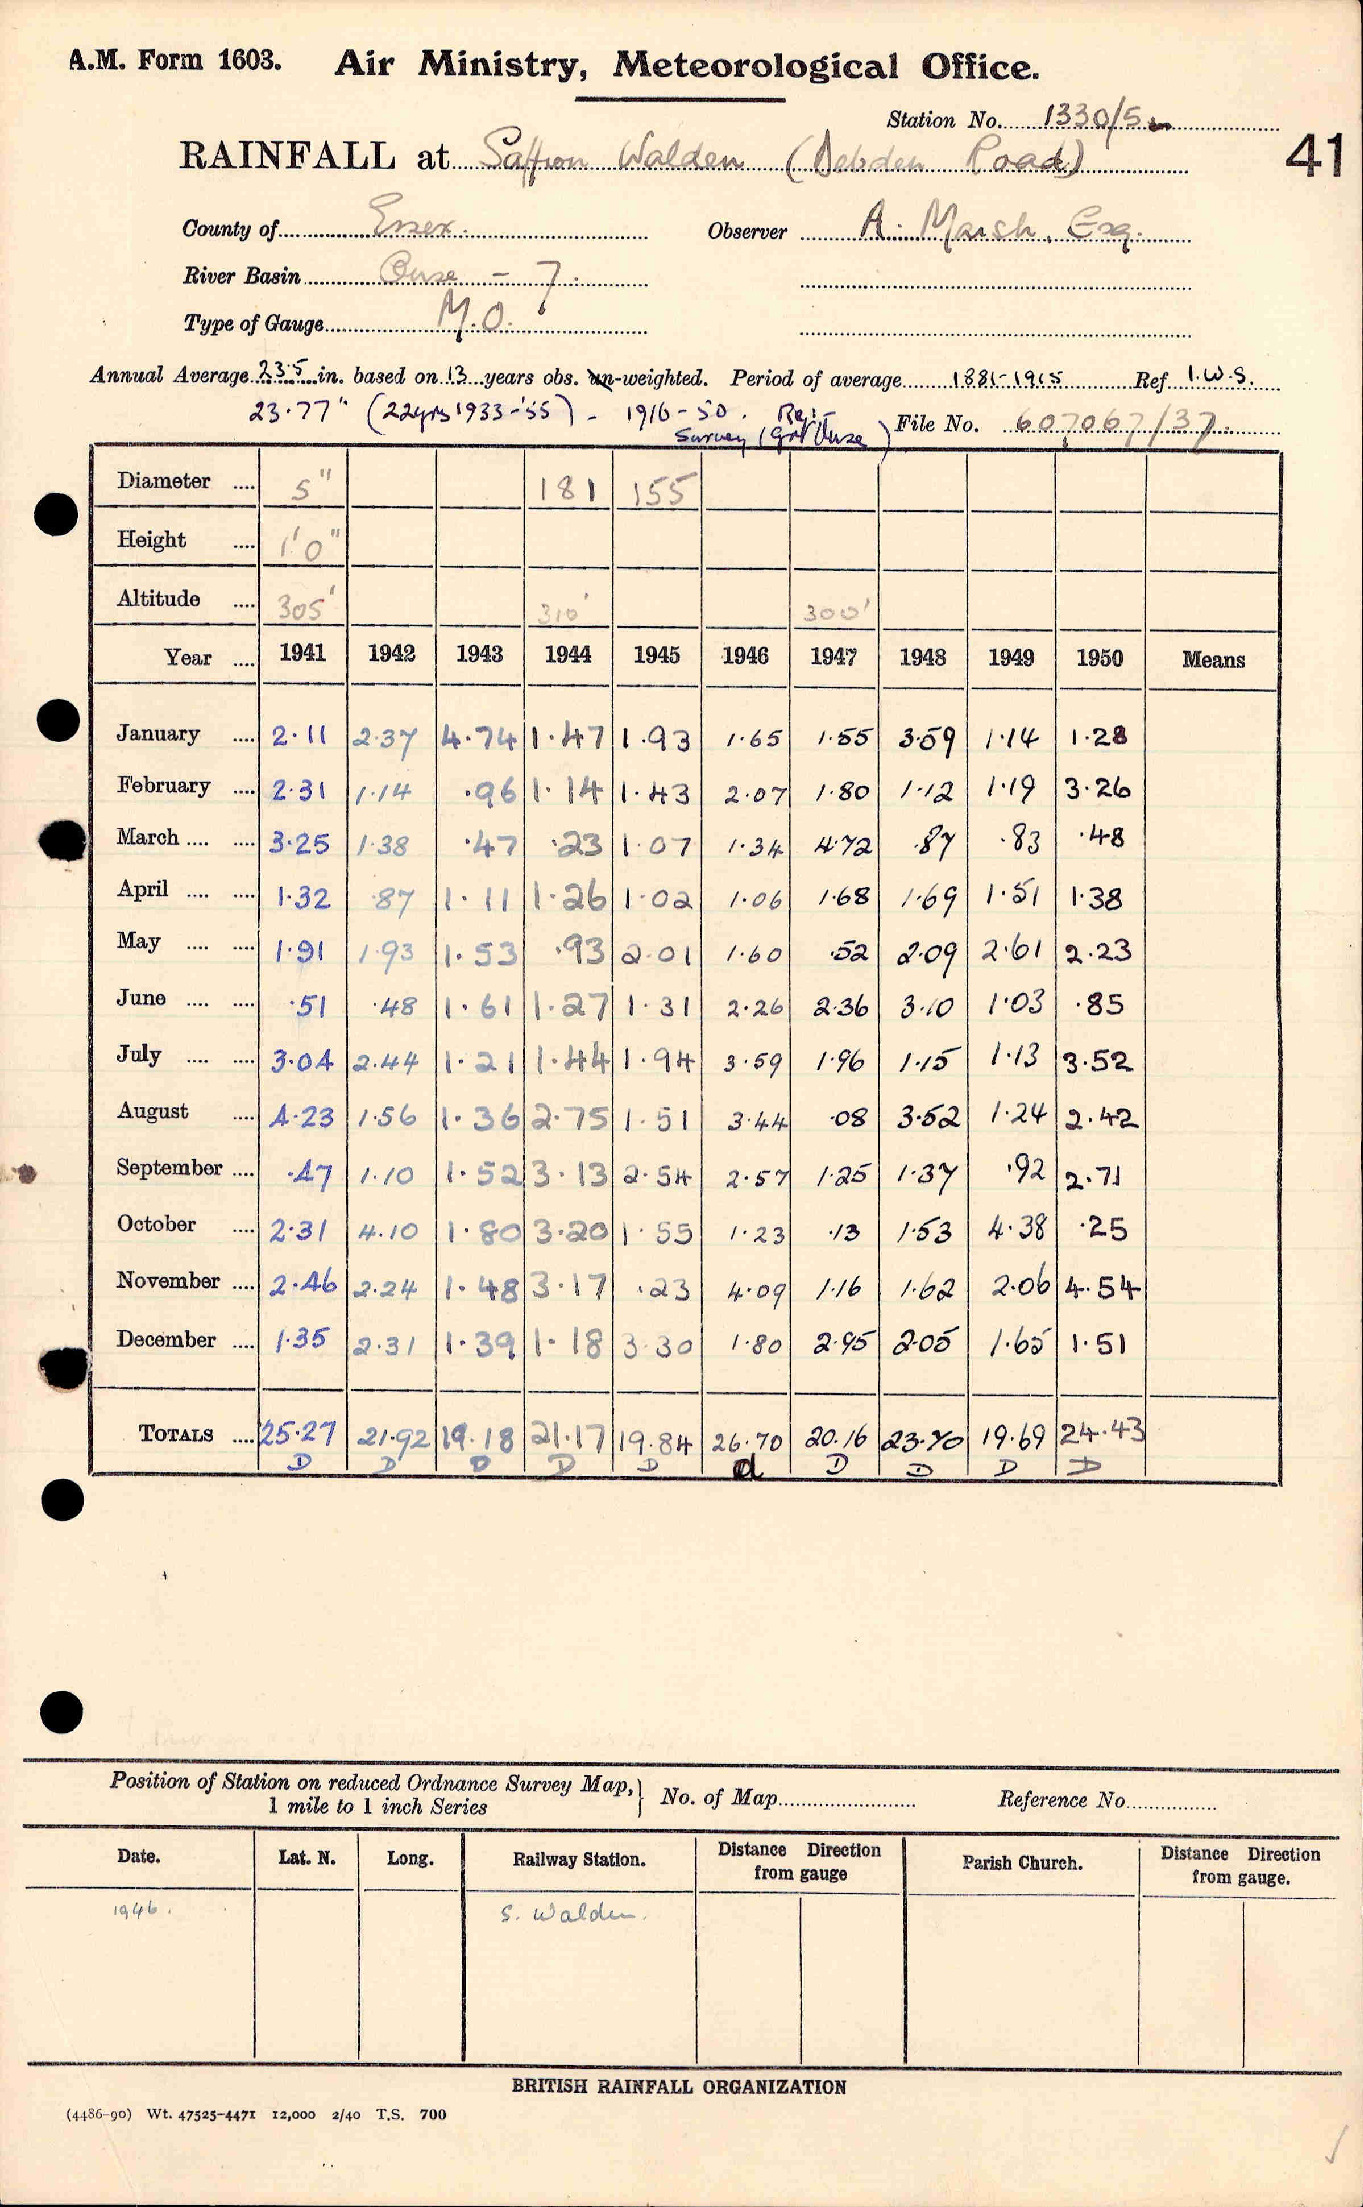 A.M. Form 1603. Air Ministry, Meteorological Office.
Station No. 1330/5
41
RAINFALL at Saffron Walden (Debden Road)
County of Essex. Observer A. Marsh, Esq.
River Basin Ouse - 7.
Type of Gauge M.O.
Annual Average 23.5 in. based on 13 years obs. un-weighted. Period of average 1881-1915 Ref I.W.S.
23.77" (22yrs 1933-'55) - 1916-50.
Survey (Grt Ouse) File No. 607067/37
Diameter .... 5" 181 155
Height .... 1'0"
Altitude .... 305' 310' 300'
Year .... 1941 1942 1943 1944 1945 1946 1947 1948 1949 1950 Means
January .... 2.11 2.37 4.74 1.47 1.93 1.65 1.55 3.59 1.14 1.28
February .... 2.31 1.14 .96 1.14 1.43 2.07 1.80 1.12 1.19 3.26
March .... .... 3.25 1.38 .47 .23 1.07 1.34 4.72 .87 .83 .48
April .... .... 1.32 .87 1.11 1.26 1.02 1.06 1.68 1.69 1.51 1.38
May .... .... 1.91 1.93 1.53 .93 2.01 1.60 .52 2.09 2.61 2.23
June .... .... .51 .48 1.61 1.27 1.31 2.26 2.36 3.10 1.03 .85
July .... .... 3.04 2.44 1.21 1.44 1.94 3.59 1.96 1.15 1.13 3.52
August .... 4.23 1.56 1.36 2.75 1.51 3.44 .08 3.52 1.24 2.42
September .... .47 1.10 1.52 3.13 2.54 2.57 1.25 1.37 .92 2.71
October .... 2.31 4.10 1.80 3.20 1.55 1.23 .13 1.53 4.38 .25
November .... 2.46 2.24 1.48 3.17 .23 4.09 1.16 1.62 2.06 4.54
December .... 1.35 2.31 1.39 1.18 3.30 1.80 2.95 2.05 1.65 1.51
TOTALS .... 25.27 21.92 19.18 21.17 19.84 26.70 20.16 23.70 19.69 24.43
D D D D D d D D D D
Position of Station on reduced Ordnance Survey Map, } No. of Map Reference No.
1 mile to 1 inch Series
Date. Lat. N. Long. Railway Station. Distance Direction from gauge Parish Church. Distance Direction from gauge.
1946. S. Walden.
BRITISH RAINFALL ORGANIZATION
(4486-90) Wt. 47525-4471 12,000 2/40 T.S. 700